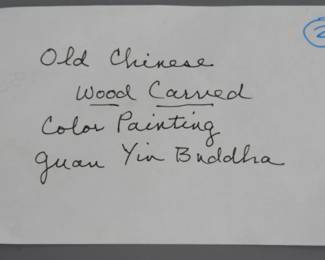 Old Chinese
Wood Carved
Color Painting
Guan Yin Buddha